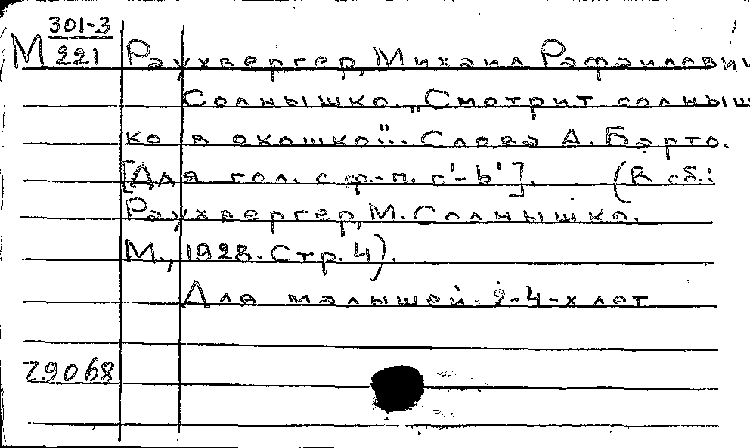 301-3
М 221 Раухвергер, Михаил Рафаилович
Солнышко. „Смотрит солныш
ко в окошко"... Слова А. Барто.
[Для гол. с ф-п. c'-h']. (В сб.:
Раухвергер, М. Солнышко.
М., 1928. Стр. 4).
Для малышей 2-4-х лет
29068